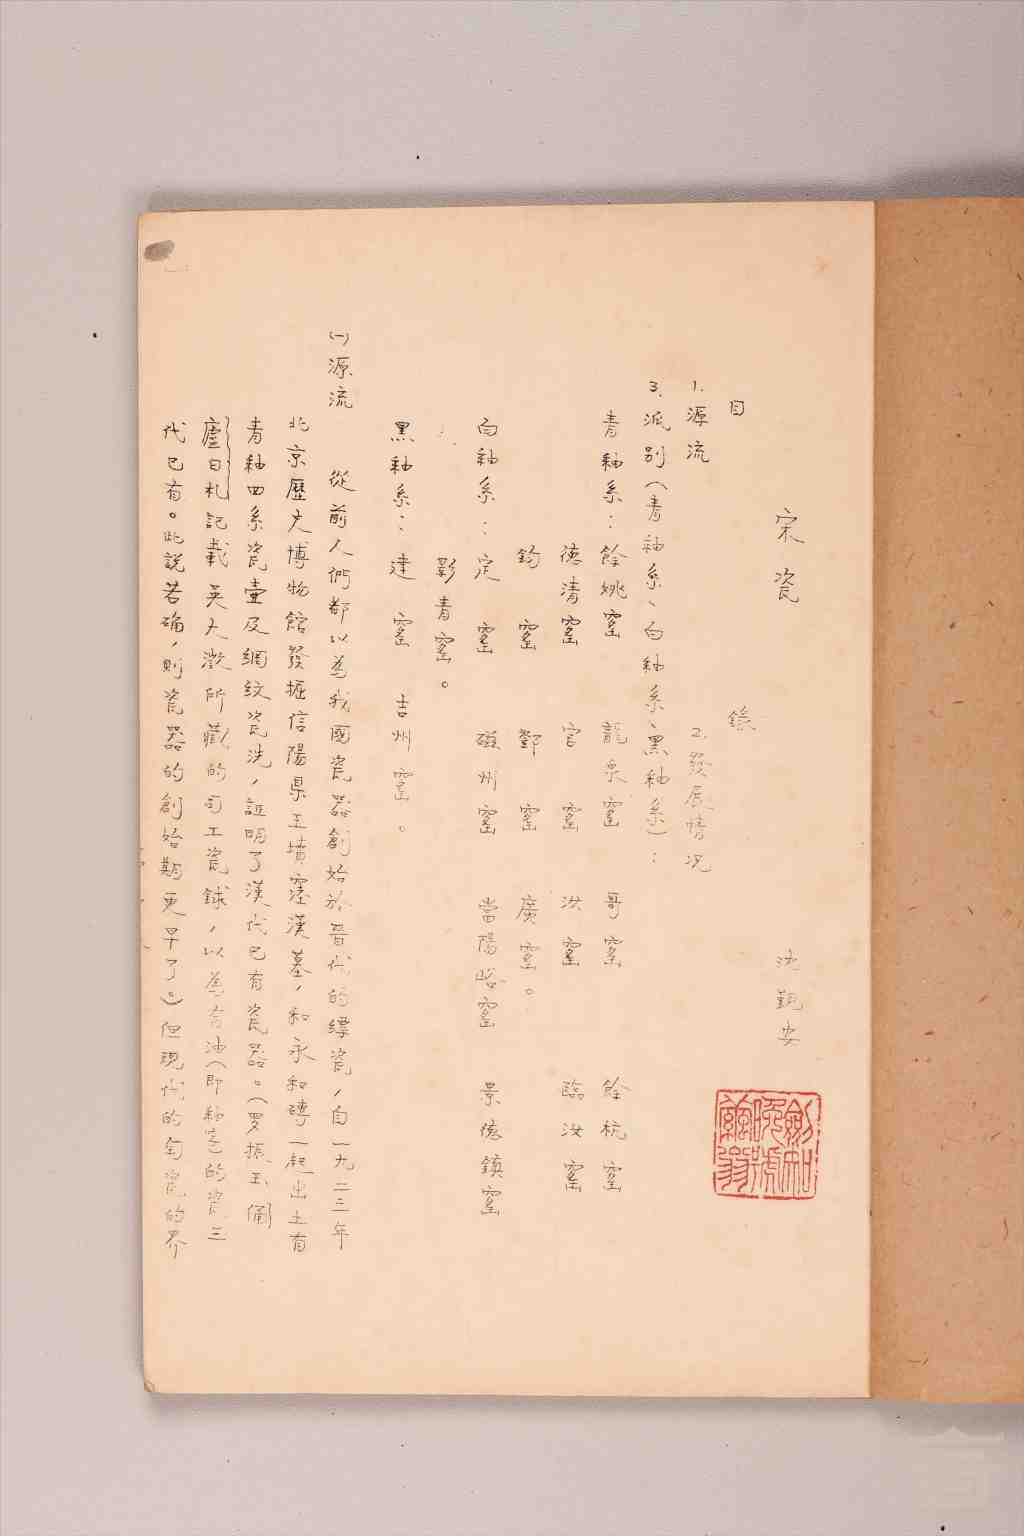 宋瓷 沈覲安
目 錄
1. 源流 2. 發展情況
3. 派別（青釉系、白釉系、黑釉系）：
青釉系：餘姚窰 龍泉窰 哥窰 餘杭窰
德清窰 官窰 汝窰 臨汝窰
鈞窰 鄧窰 廣窰。
白釉系：定窰 磁州窰 當陽峪窰 景德鎮窰
影青窰。
黑釉系：建窰 吉州窰。
(一)源流 從前人們都以為我國瓷器創始於晉代的縹瓷，自一九二三年
北京歷史博物館發掘信陽県王墳窪漢墓，和永和磚一起出土有
青釉四系瓷壷及網紋瓷洗，証明了漢代已有瓷器。（罗振玉 俑
廬日札記載吴大澂所藏的司工瓷錸，以為有油（即釉）的瓷三
代已有。此説若确，則瓷器的創始期更早了。）但現代的匋瓷的界
劍知晚號繭翁